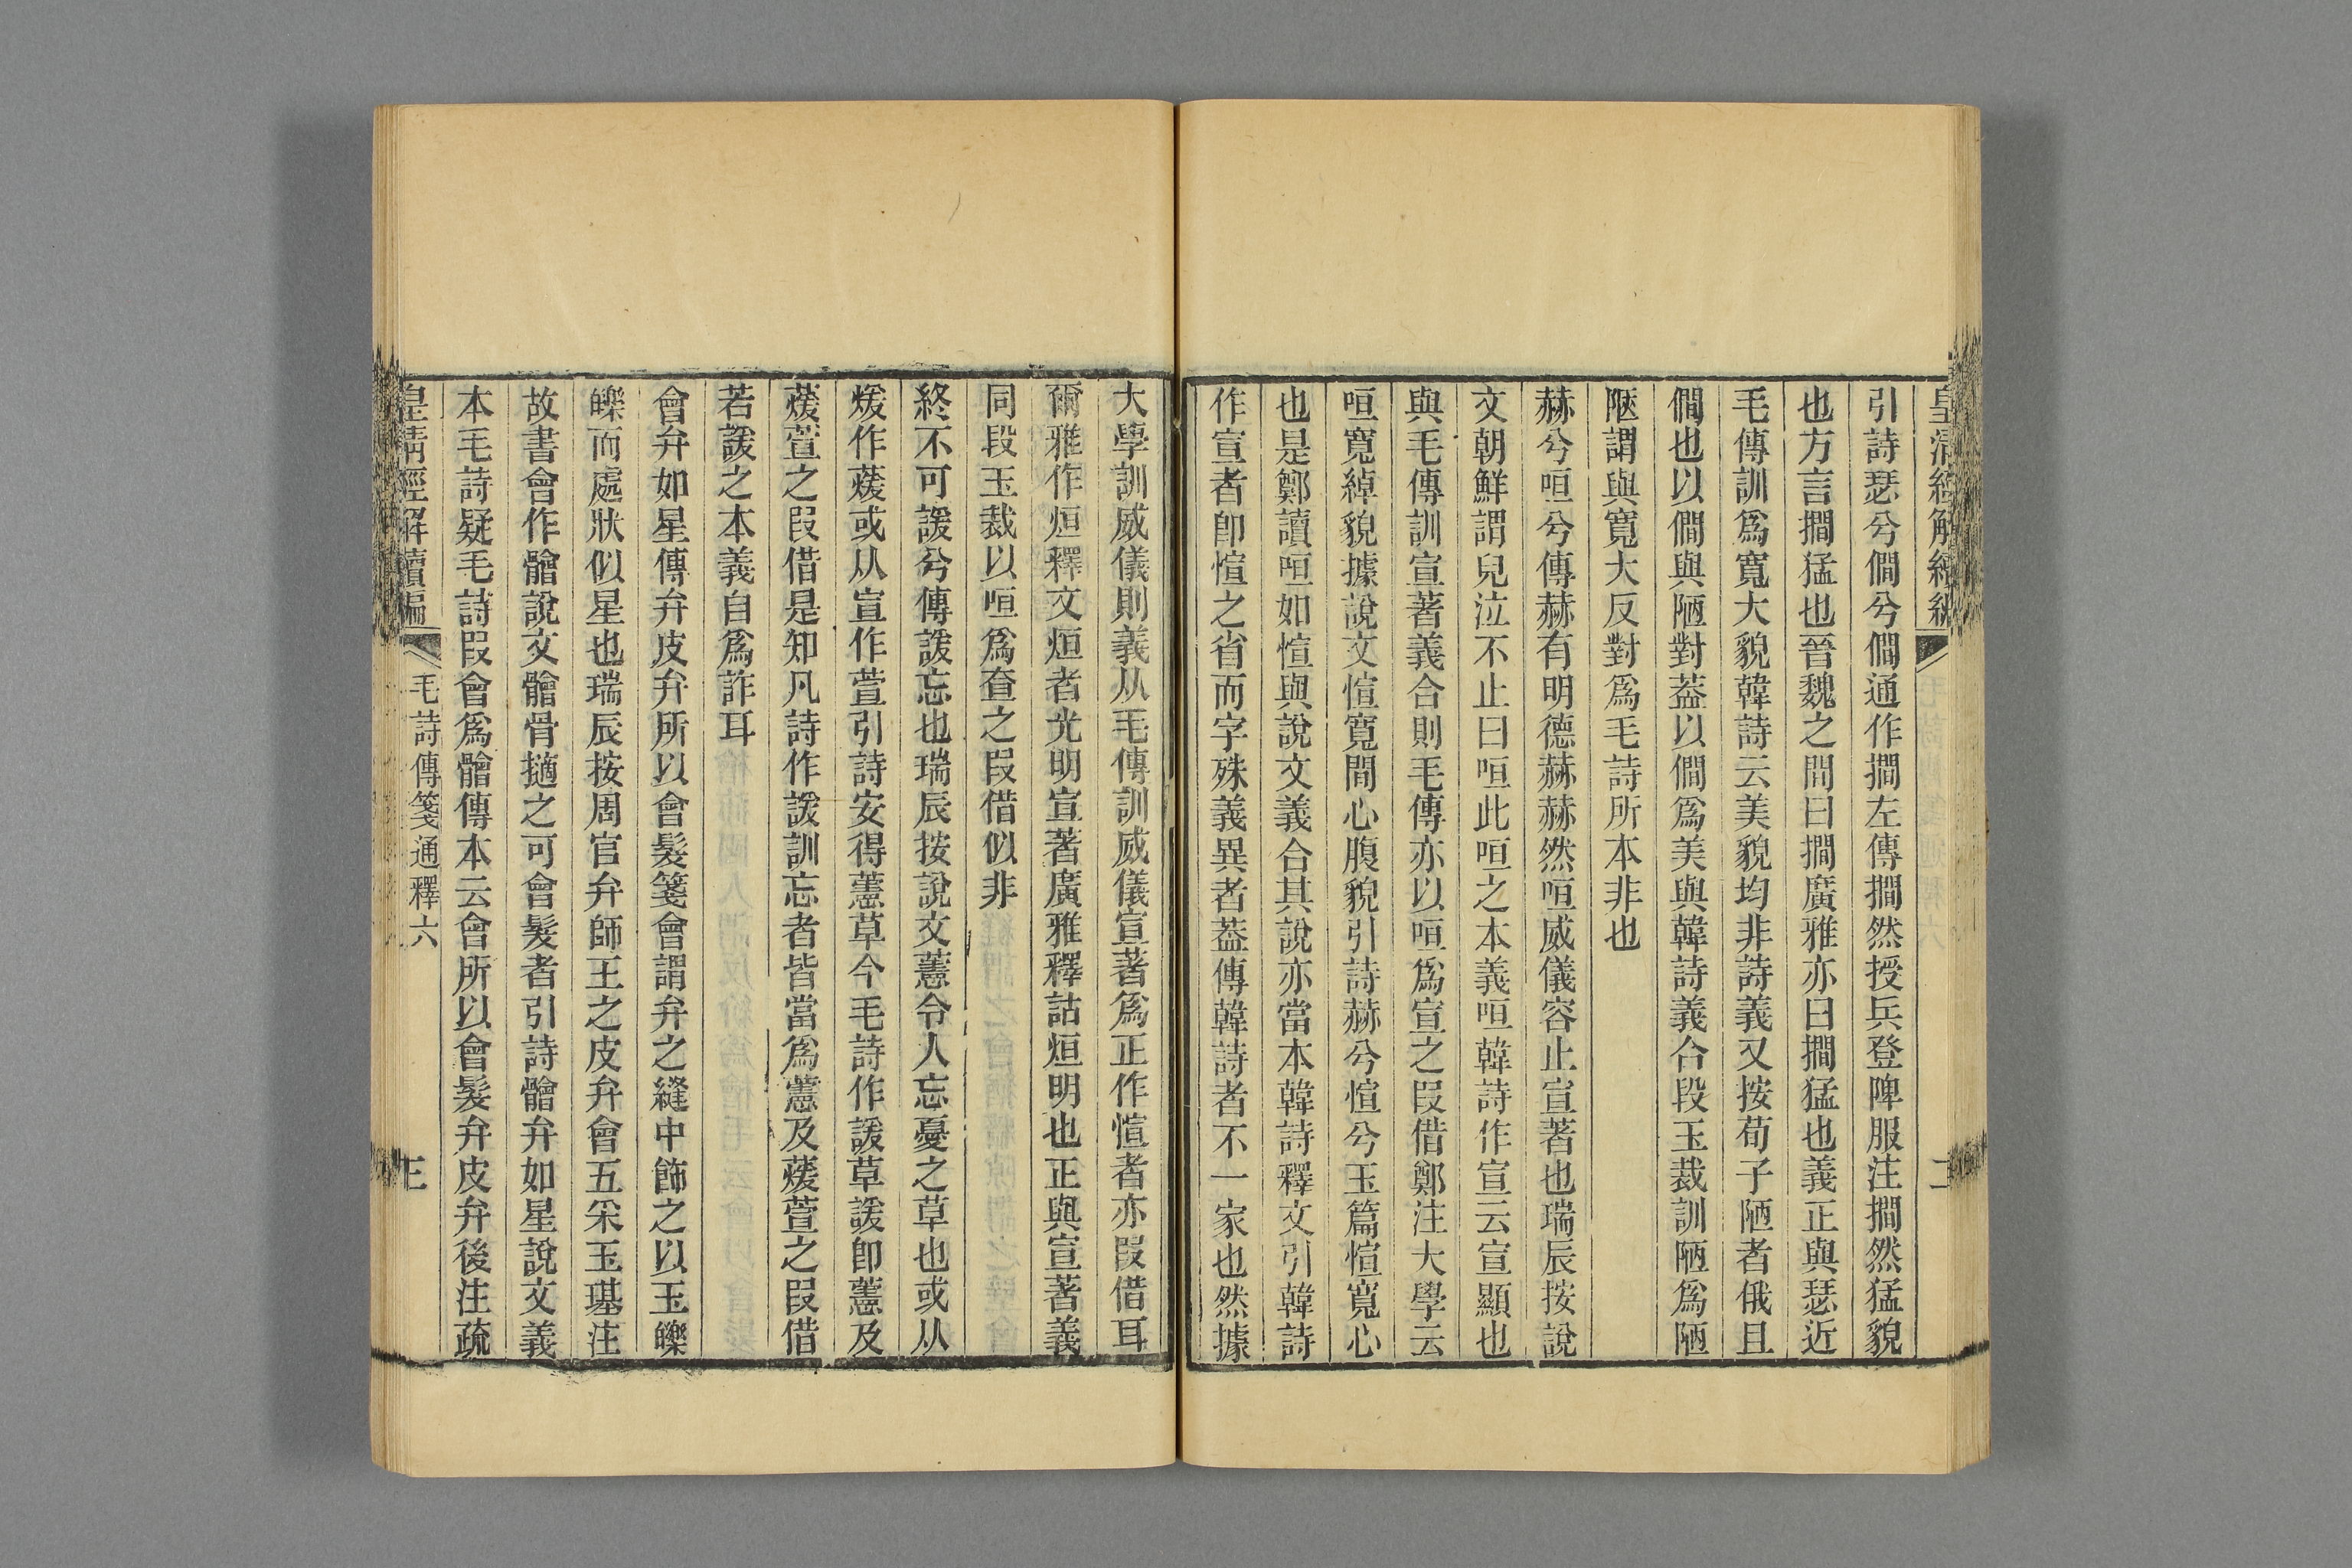 引詩瑟兮僩兮僩通作撊左傳撊然授兵登陴服注撊然猛貌
也方言撊猛也晉魏之間曰撊廣雅亦曰撊猛也義正與瑟近
毛傳訓爲寬大貌韓詩云美貌均非詩義又按荀子陋者俄且
僩也以僩與陋對葢以僩爲美與韓詩義合段玉裁訓陋爲陋
陿謂與寬大反對爲毛詩所本非也
赫兮咺兮傳赫有明德赫赫然咺威儀容止宣著也瑞辰按說
文朝鮮謂兒泣不止曰咺此咺之本義咺韓詩作宣云宣顯也
與毛傳訓宣著義合則毛傳亦以咺爲宣之叚借鄭注大學云
咺寬綽貌據說文愃寬閒心腹貌引詩赫兮愃兮玉篇愃寬心
也是鄭讀咺如愃與說文義合其說亦當本韓詩釋文引韓詩
作宣者卽愃之省而字殊義異者葢傳韓詩者不一家也然據
大學訓威儀則義从毛傳訓威儀宣著爲正作愃者亦叚借耳
爾雅作烜釋文烜者光明宣著廣雅釋詁烜明也正與宣著義
同段玉裁以咺爲𡩡之叚借似非
終不可諼兮傳諼忘也瑞辰按說文藼令人忘憂之草也或从
煖作蕿或从宣作萱引詩安得藼草今毛詩作諼草諼卽藼及
蕿萱之叚借是知凡詩作諼訓忘者皆當爲藼及蕿萱之叚借
若諼之本義自爲詐耳
會弁如星傳弁皮弁所以會髮箋會謂弁之縫中飾之以玉皪
皪而處狀似星也瑞辰按周官弁師王之皮弁會五采玉璂注
故書會作䯤說文䯤骨擿之可會髮者引詩䯤弁如星說文義
本毛詩疑毛詩叚會爲䯤傳本云會所以會髮弁皮弁後注疏
皇淸經解續編
毛詩傳箋通釋六
三